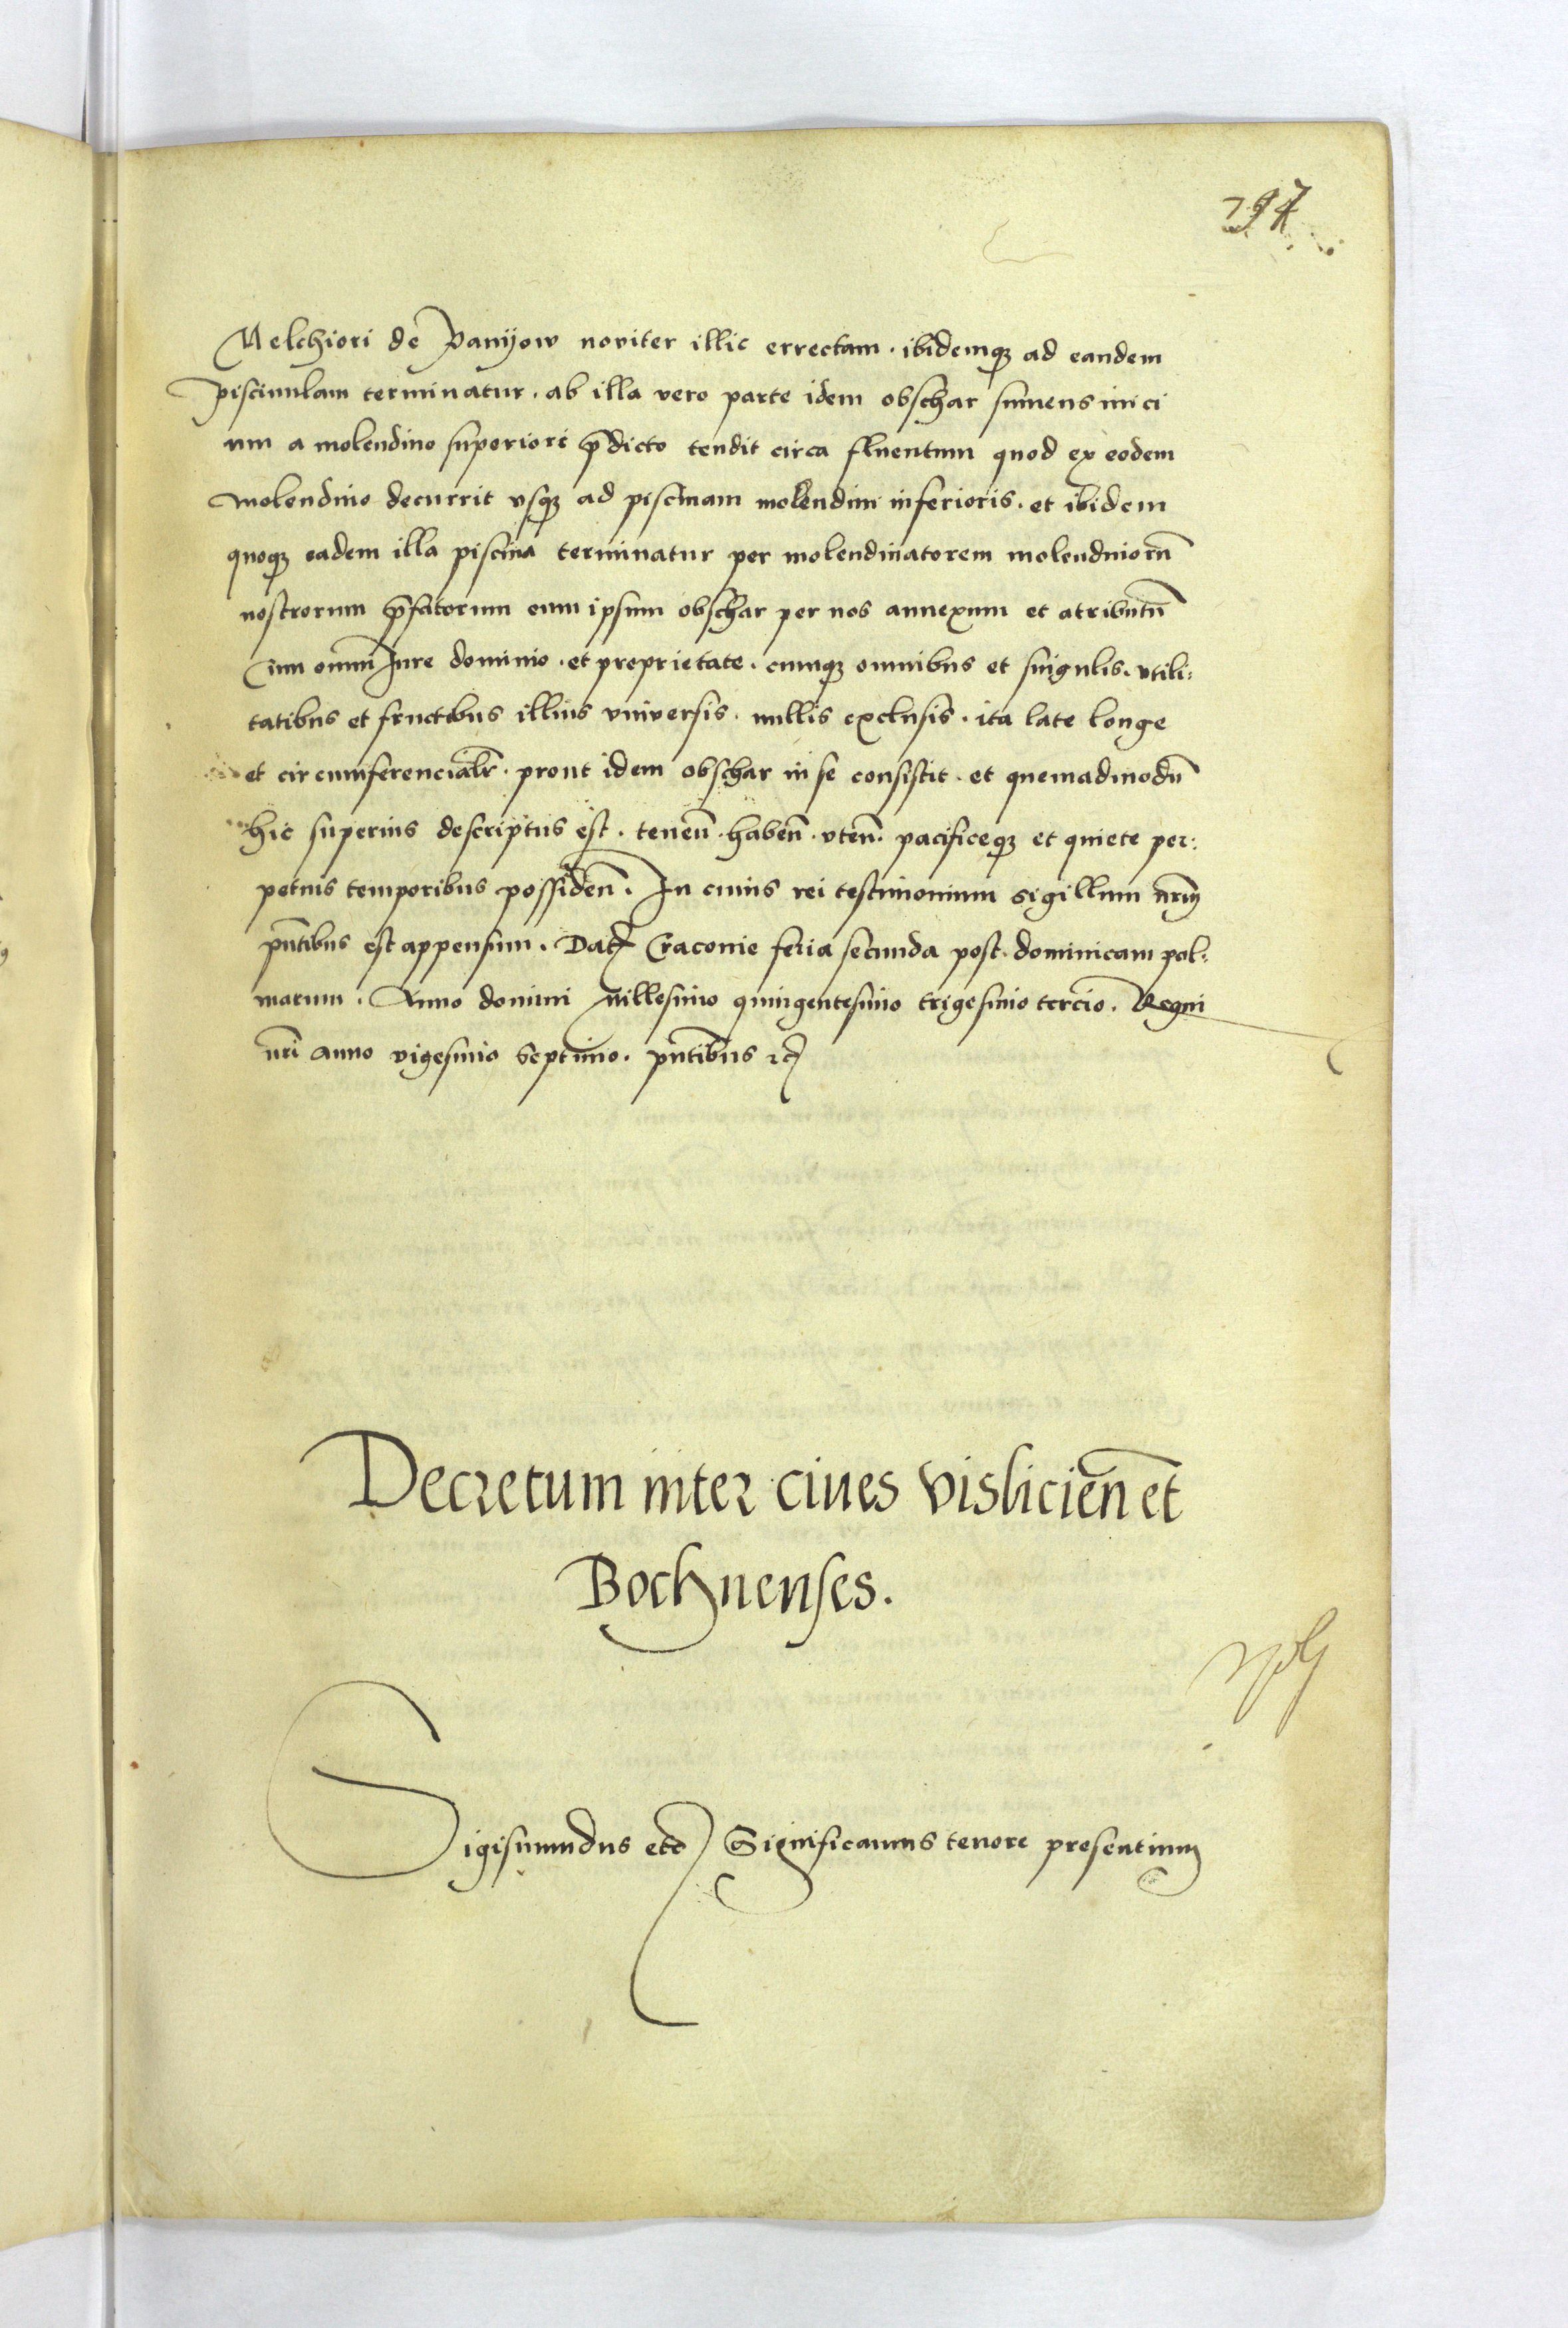 297
Melchiori de Panijow noviter illic errectam . ibidemqꝫ ad eandem
piscinulam terminatur . ab illa vero parte idem obschar sumens inici
um a molendino superiori p̄dicto tendit circa fluentum quod ex eodem
molendino decurrit vsqꝫ ad piscinam molendini inferioris . et ibidem
quoqꝫ eadem illa piscina terminatur per molendinatorem molendinorū
nostrorum p̄fatorum eum ipsum obschar per nos annexum et atributū
Cum omni Iure dominio . et proprietate . cumqꝫ omnibus et singulis . vtili:
tatibus et fructibus illius vniversis . nullis exclusis . ita late longe
et circumferencialr̄ . prout idem obschar in se consistit . et quemadmodū
hic superius descriptus est . teneñ . habeñ . vteñ . pacificeqꝫ et quiete per:
petuis temporibus possideñ . In cuius rei testimonium sigillum nr̄m
pñtibus est appensum . Datꝭ Craconie feria secunda post dominicam pal:
marum . Anno domini Millesimo quingentesimo trigesimo tercio . Regni
nr̄i anno vigesimo septimo . pñtibus ⁊cꝭ
Decretum inter ciues visliciēn et
Bochnenses .
Sigismundus etcꝭ Significamus tenore presentium